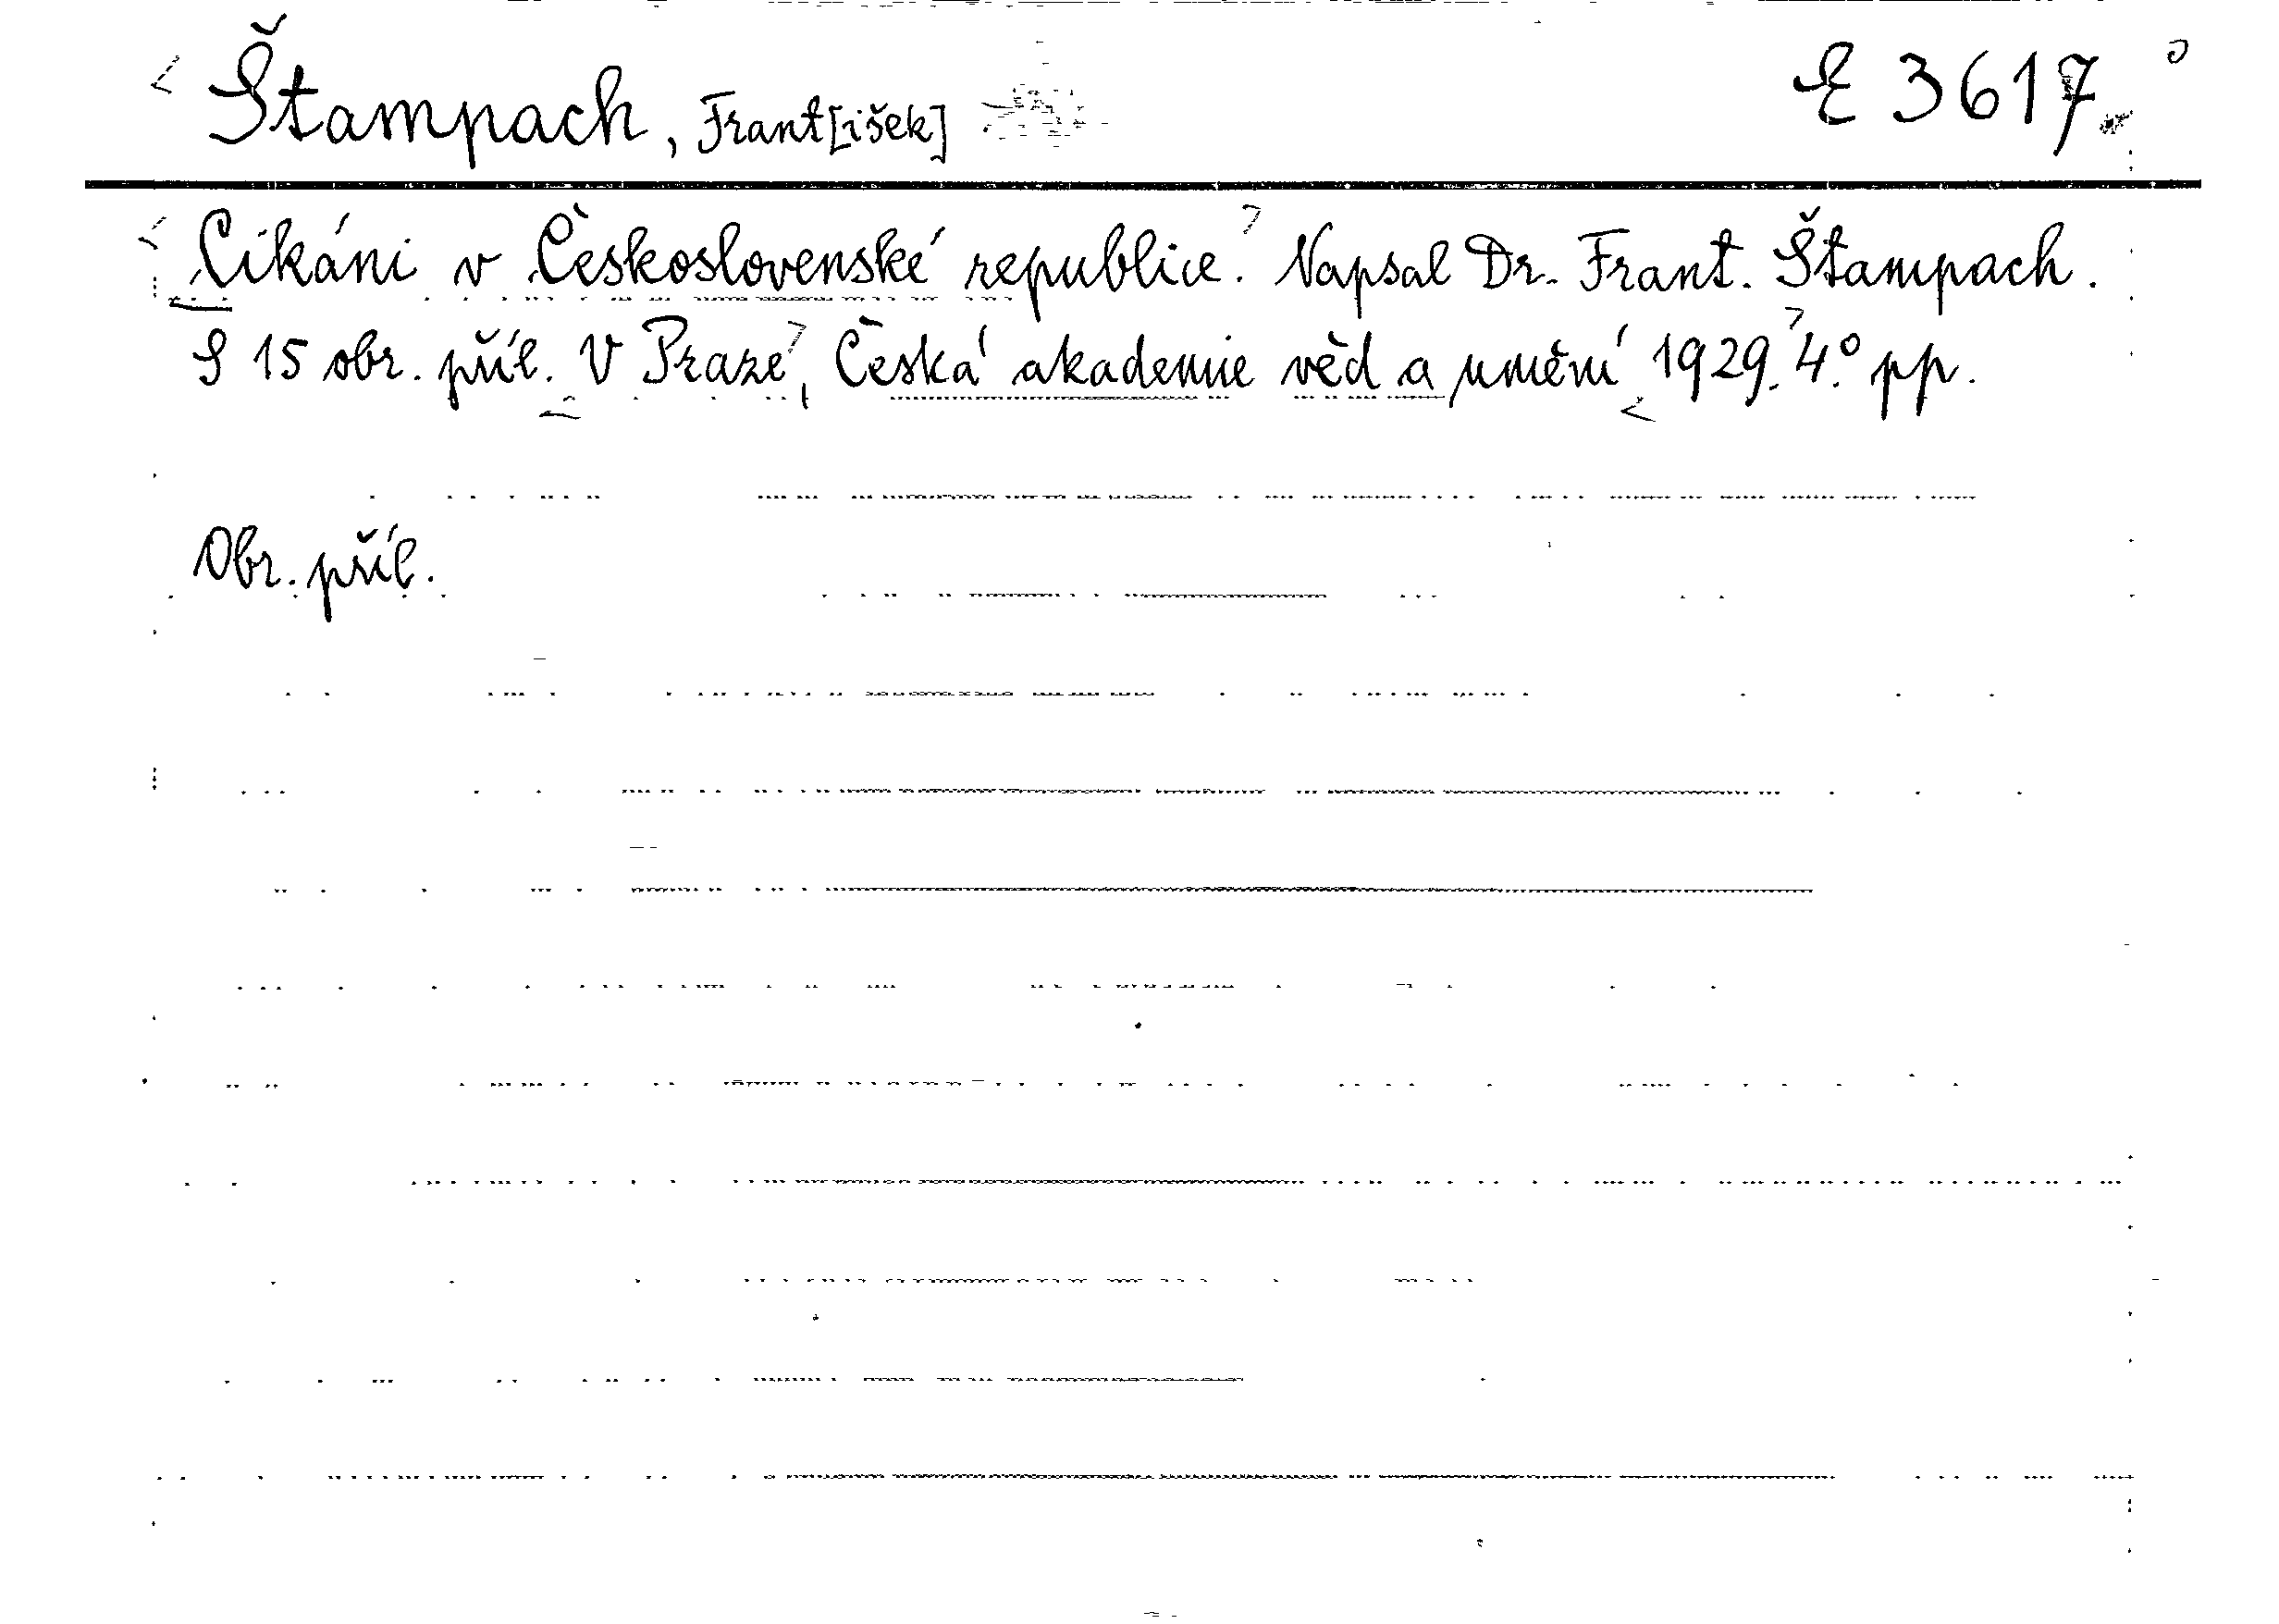 Štampach, Frant[išek] E 3617
Cikáni v Československé republice. Napsal Dr. Frant. Štampach.
S 15 obr. příl. V Praze, Česká akademie věd a umění 1929. 4.° pp.
Obr. příl.